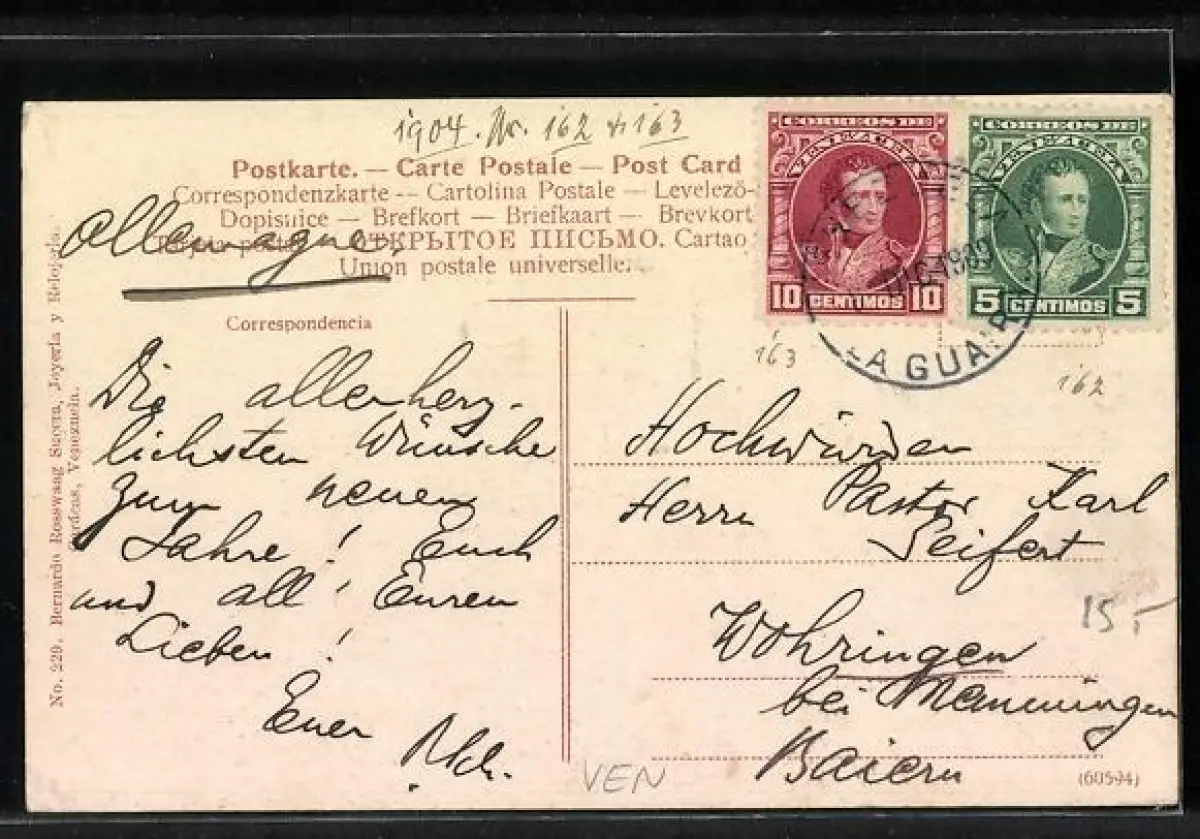 1904. Nr. 162 & 163
Postkarte. — Carte Postale — Post Card
Correspondenzkarte — Cartolina Postale — Levelező-
Dopisnice — Brefkort — Briefkaart — Brevkort
ОТКРЫТОЕ ПИСЬМО. Cartao
Union postale universelle.
Allemagne.
Correspondencia
Die allerherz-
lichsten Wünsche
zum neuen
Jahre! Euch
und all' Euren
Lieben!
Euer
CORREOS DE
VENEZUELA
10 CENTIMOS 10
CORREOS DE
VENEZUELA
5 CENTIMOS 5
1909
LA GUAIRA
163
162
Hochwürden
Herrn Pastor Karl
Seifert
Wohringen
bei Memmingen
Baiern
15,-
VEN
(60594)
No. 229. Bernardo Rosswang Sucrn, Joyeria y Relojeria.
Caracas, Venezuela.